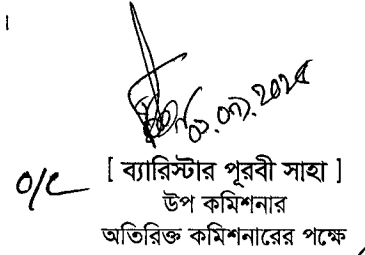 ।
০১.০৭.২০২৫
O/C [ ব্যারিস্টার পূরবী সাহা ]
উপ কমিশনার
অতিরিক্ত কমিশনারের পক্ষে